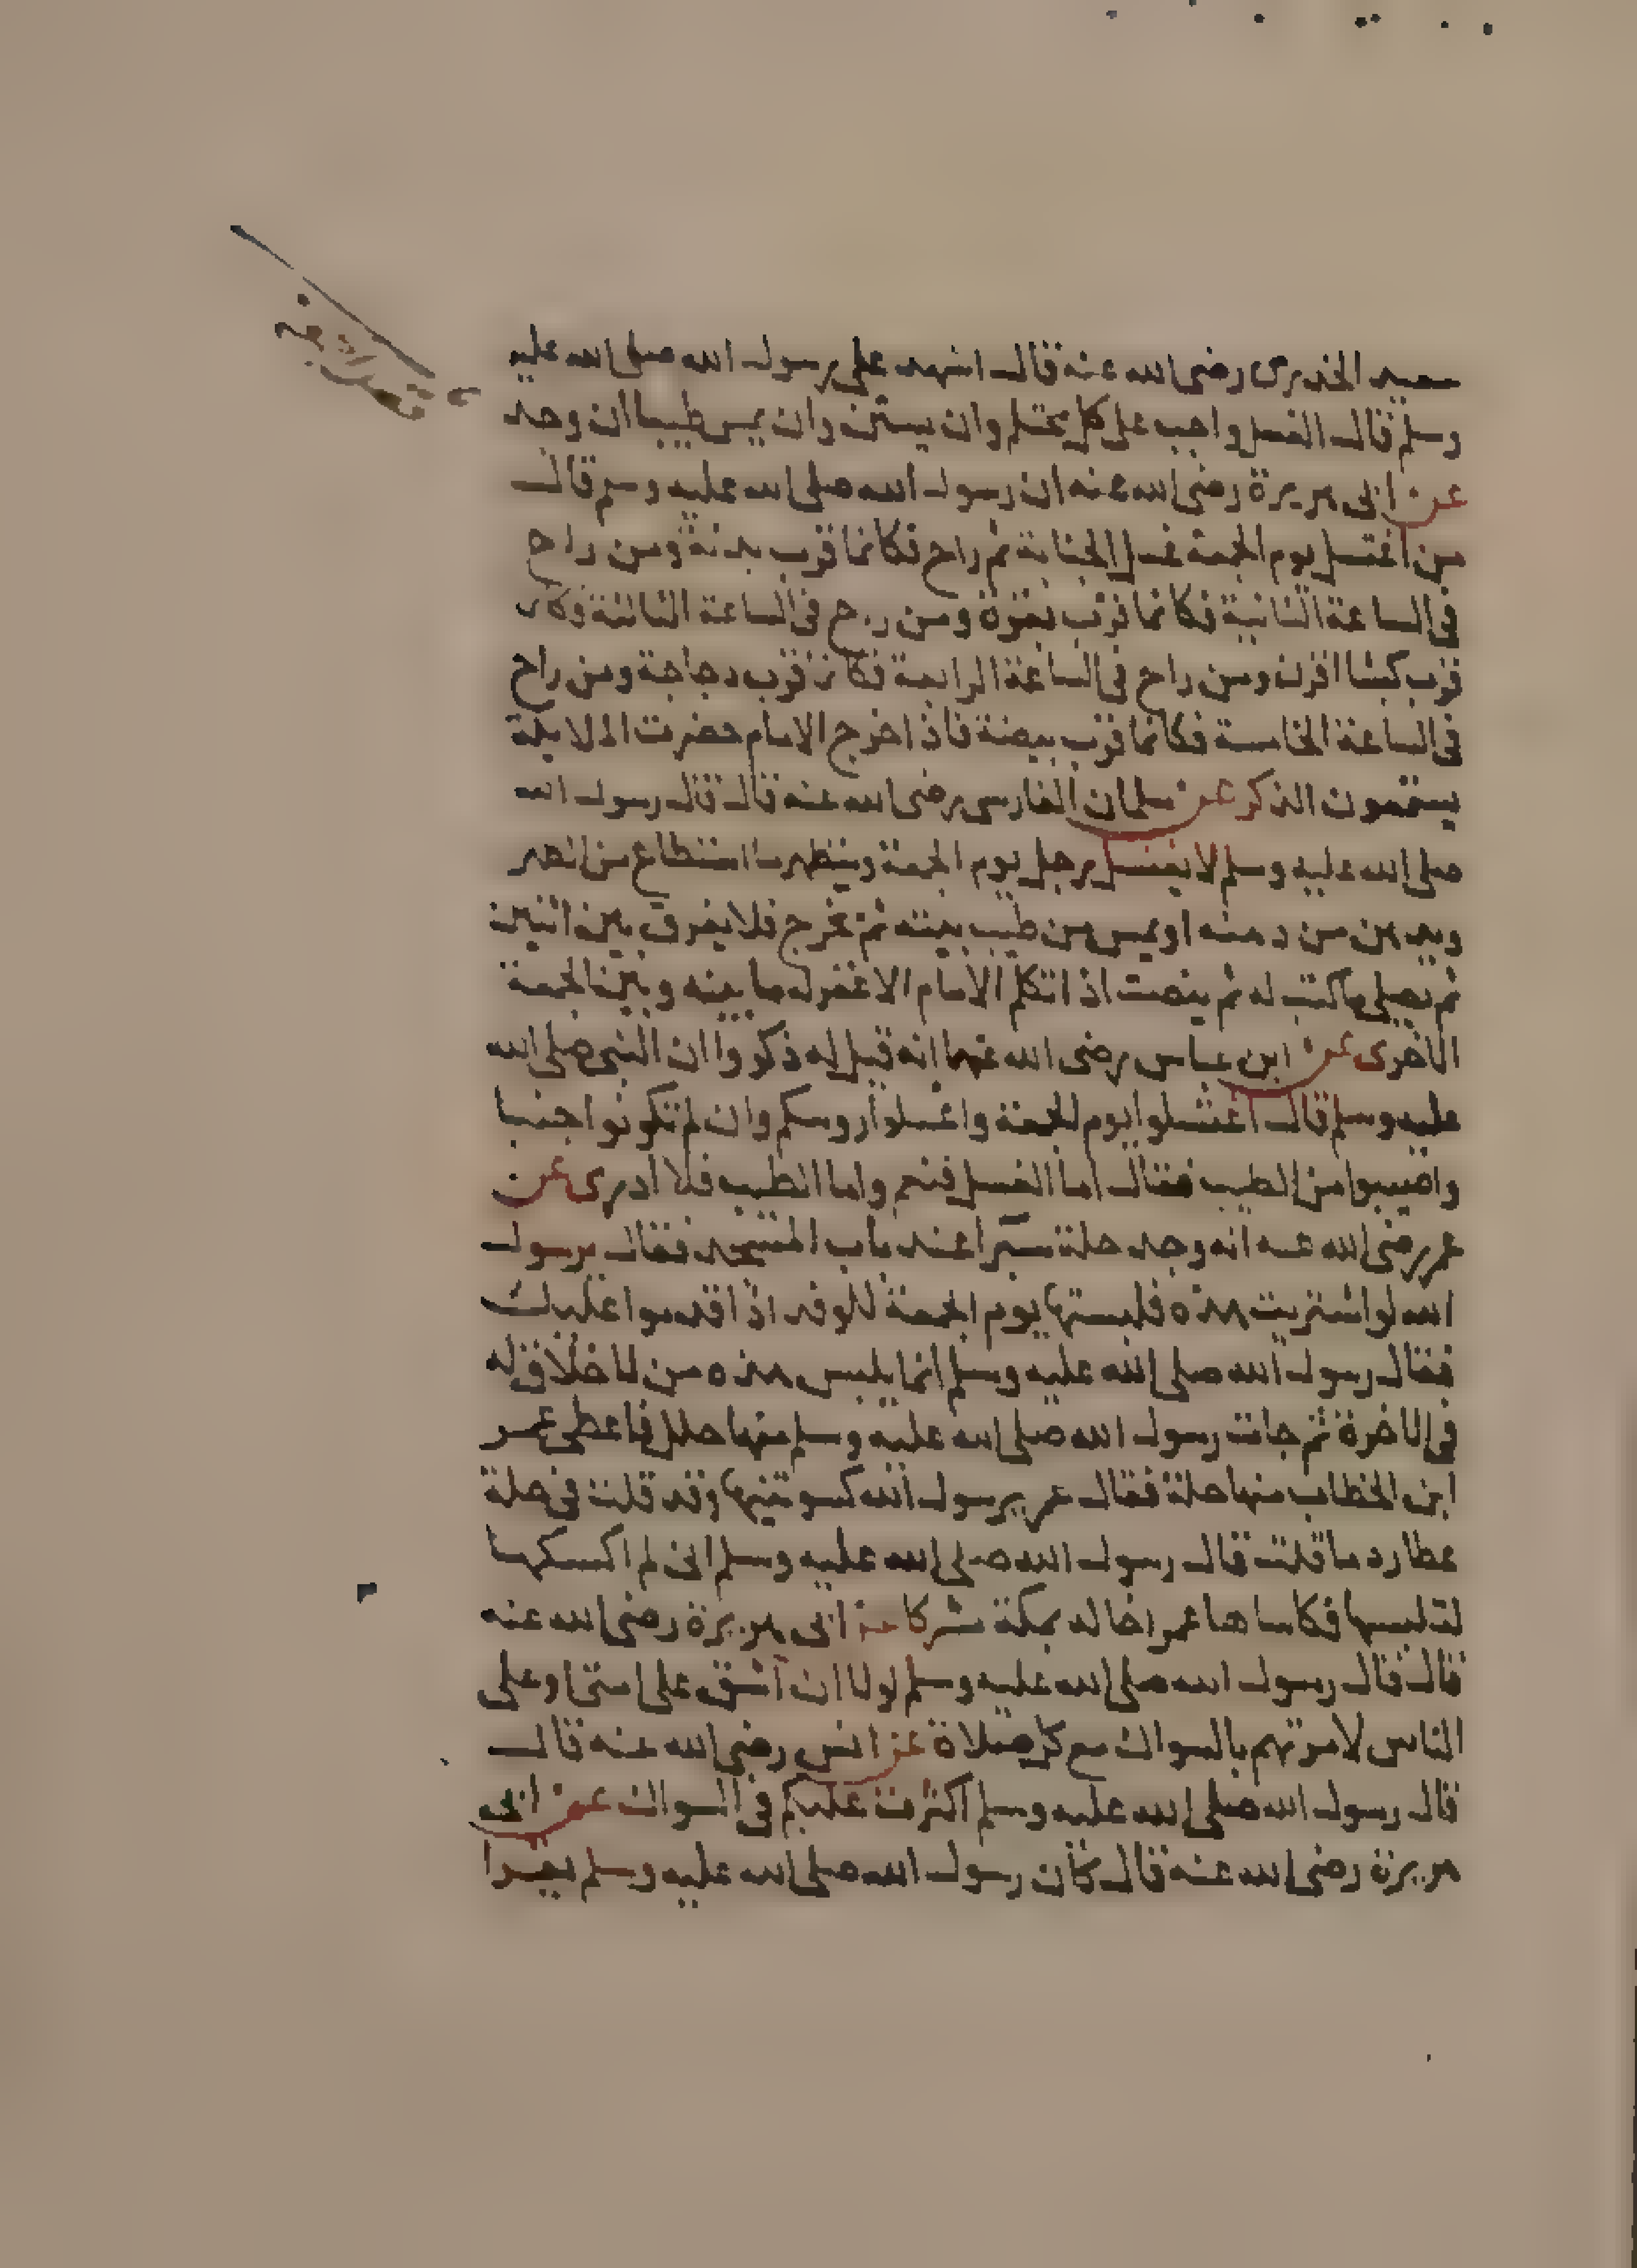 سعيد الخدرى رضى الله عنه قال اشهد على رسول الله صلى الله عليه
وسلم قال الغسل واجب على كل محتلم وان يستن وان يمس طيبا ان وجد
عن ابى هريرة رضى الله عنه ان رسول الله صلى الله عليه وسلم قال
من اغتسل يوم الجمعة غسل الجنابة ثم راح فكانما قرب بدنة ومن راح
فى الساعة الثانية فكانما قرب بقرة ومن راح فى الساعة الثالثة فكان
قرب كبشا اقرن ومن راح فى الساعة الرابعة فكانما قرب دجاجة ومن راح
فى الساعة الخامسة فكانما قرب بيضة فاذا خرج الامام حضرت الملايكة
يستمعون الذكر عن سلمان الفارسى رضى الله عنه قال قال رسول الله
صلى الله عليه وسلم لا يغتسل رجل يوم الجمعة ويتطهر ما استطاع من الطهر
ويدهن من دهنه او يمس من طيب بيته ثم يخرج فلا يفرق بين اثنين
ثم يصلى ما كتب له ثم ينصت اذا تكلم الامام الا غفر له ما بينه وبين الجمعة
الاخرى عن ابن عباس رضى الله عنهما انه قيل له ذكروا ان النبى صلى الله
عليه وسلم قال اغتسلوا يوم الجمعة واغسلوا روسكم وان لم تكونوا جنبا
واصيبوا من الطيب فقال اما الغسل فنعم واما الطيب فلا ادرى عن
عمر رضى الله عنه انه وجد حلة سيرا عند باب المسجد فقال يرسول
الله لو اشتريت هذه فلبستها يوم الجمعة للوفد اذا قدموا عليك
فقال رسول الله صلى الله عليه وسلم انما يلبس هذه من لا خلاق له
فى الاخرة ثم جات رسول الله صلى الله عليه وسلم منها حلل فاعطى عمر
ابن الخطاب منها حلة فقال عمر يرسول الله كسوتنيها وقد قلت فى حلة
عطارد ما قلت قال رسول الله صلى الله عليه وسلم انى لم اكسكها
لتلبسها فكاساها عمر اخا له بمكة مشركا عن ابى هريرة رضى الله عنه
قال قال رسول الله صلى الله عليه وسلم لولا ان اشق على امتى او على
الناس لامرتهم بالسواك مع كل صلاة عن انس رضى الله عنه قال
قال رسول الله صلى الله عليه وسلم اكثرت عليكم فى السواك عن ابى
هريرة رضى الله عنه قال كان رسول الله صلى الله عليه وسلم يقرا